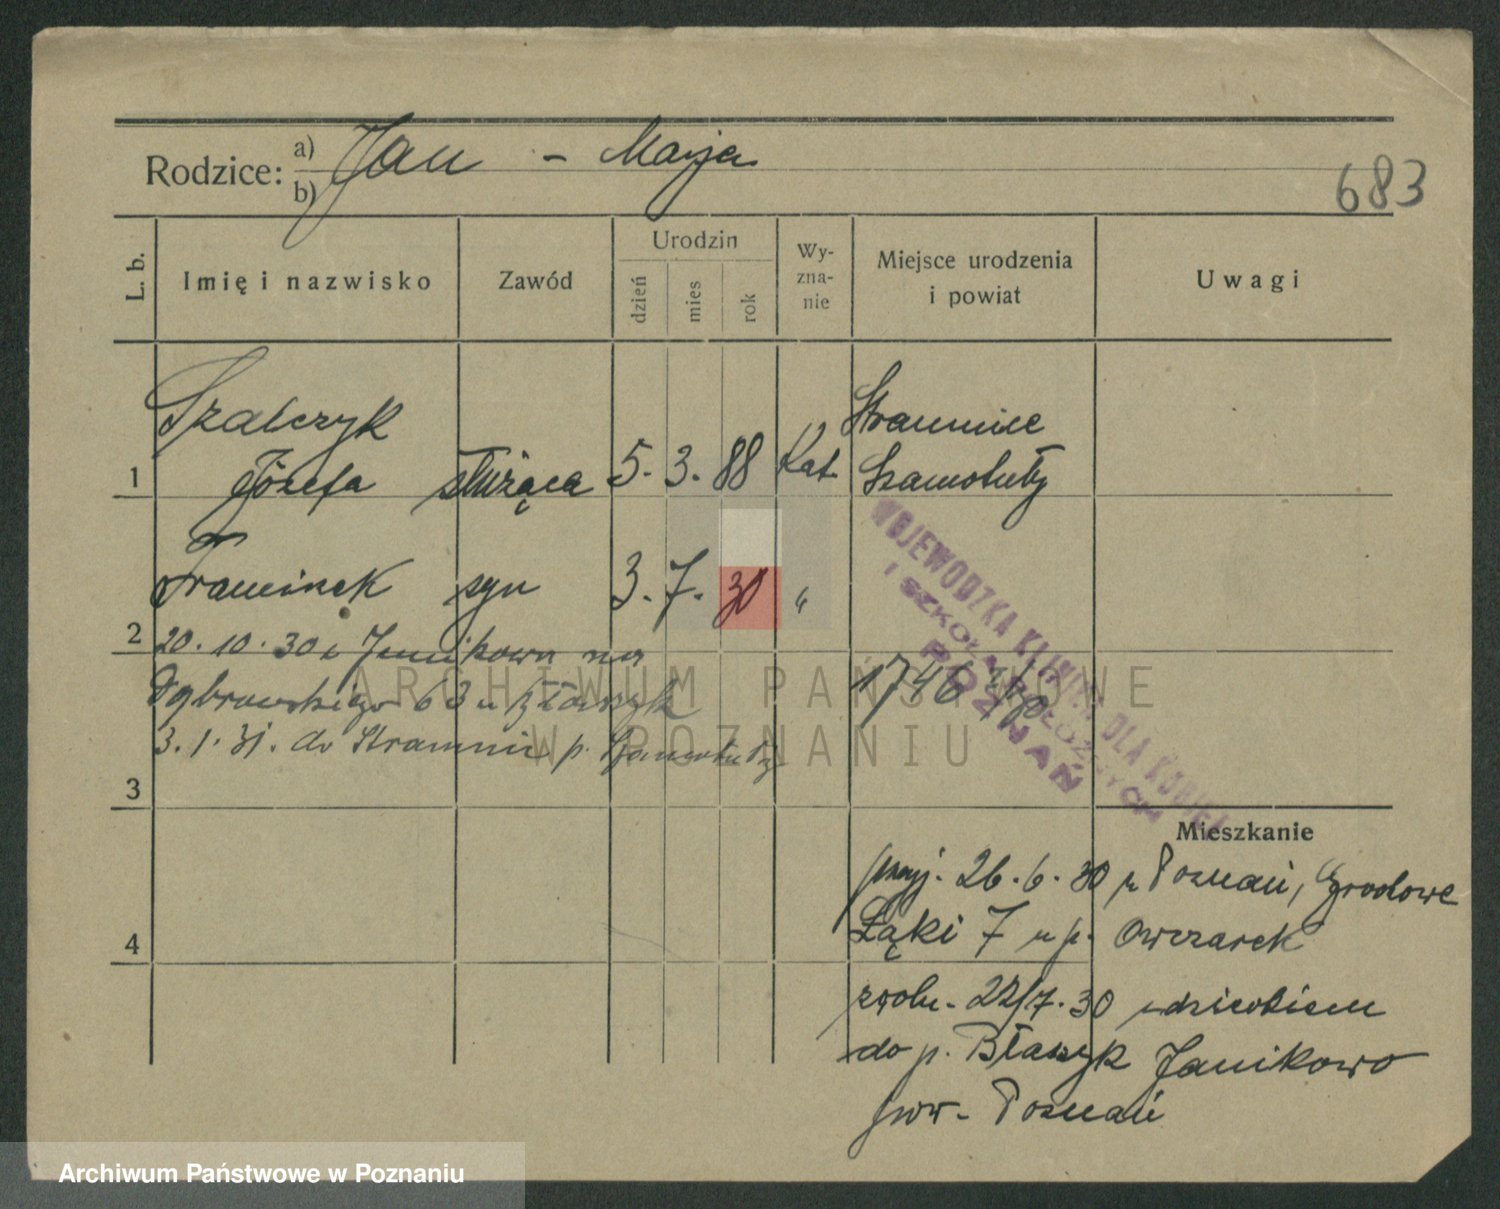 Rodzice: a) b) Jan - Marja
683
L. b.
Imię i nazwisko
Zawód
Urodzin
dzień
mies
rok
Wy-
zna-
nie
Miejsce urodzenia
i powiat
Uwagi
Szalczyk
1 Józefa służąca 5. 3. 88 Kat.
Stramnice
Szamotuły
Franciszek syn 3. 7. 30 "
2
20.10.30 z Janikowa na
Dąbrowskiego 63 u Błaszyk
3.1.31. do Stramnic p. Szamotuły
1746
WOJEWÓDZKA KLINIKA DLA KOBIET
I SZKOŁA POŁOŻNYCH
POZNAŃ
3
Mieszkanie
przyj. 26.6.30 z Poznań, Grodowe
4 Łąki 7 u p. Owczarek
zwoln. 22/7.30 z dzieckiem
do p. Błaszyk Janikowo
pow. Poznań
ARCHIWUM PAŃSTWOWE
W POZNANIU
Archiwum Państwowe w Poznaniu